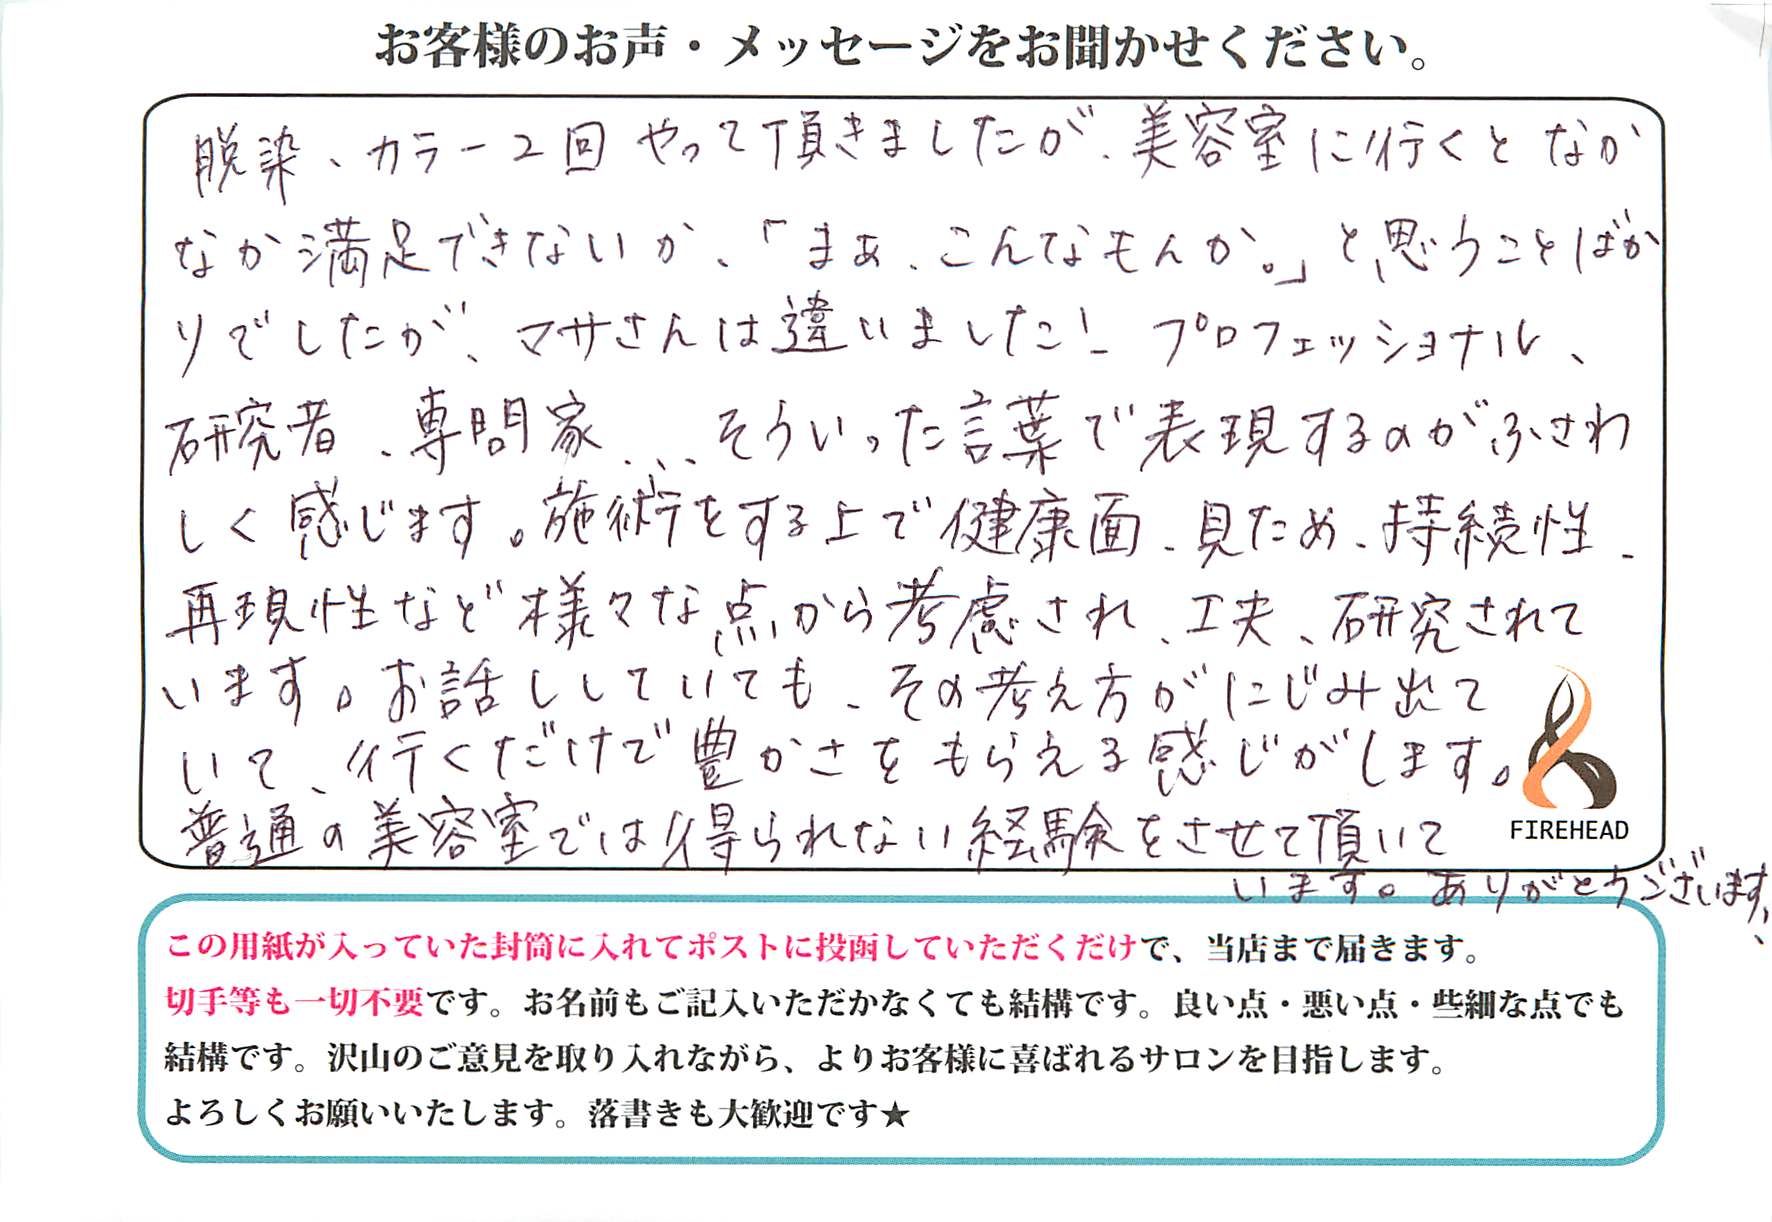 お客様のお声・メッセージをお聞かせください。
脱染、カラー2回やって頂きましたが、美容室に行くとなか
なか満足できないか、「まぁ、こんなもんか。」と思うことばか
りでしたが、マサさんは違いました！プロフェッショナル、
研究者、専門家、、、そういった言葉で表現するのがふさわ
しく感じます。施術をする上で健康面、見ため、持続性、
再現性など様々な点から考慮され、工夫、研究されて
います。お話ししていても、その考え方がにじみ出て
いて、行くだけで豊かさをもらえる感じがします。
普通の美容室では得られない経験をさせて頂いて
います。ありがとうございます、、
FIREHEAD
この用紙が入っていた封筒に入れてポストに投函していただくだけで、当店まで届きます。
切手等も一切不要です。お名前もご記入いただかなくても結構です。良い点・悪い点・些細な点でも
結構です。沢山のご意見を取り入れながら、よりお客様に喜ばれるサロンを目指します。
よろしくお願いいたします。落書きも大歓迎です★